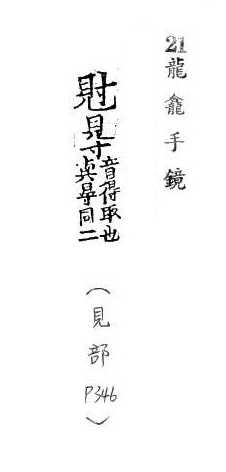 21龍龕手鏡
䙷
音得取也
同二
(見部P346)